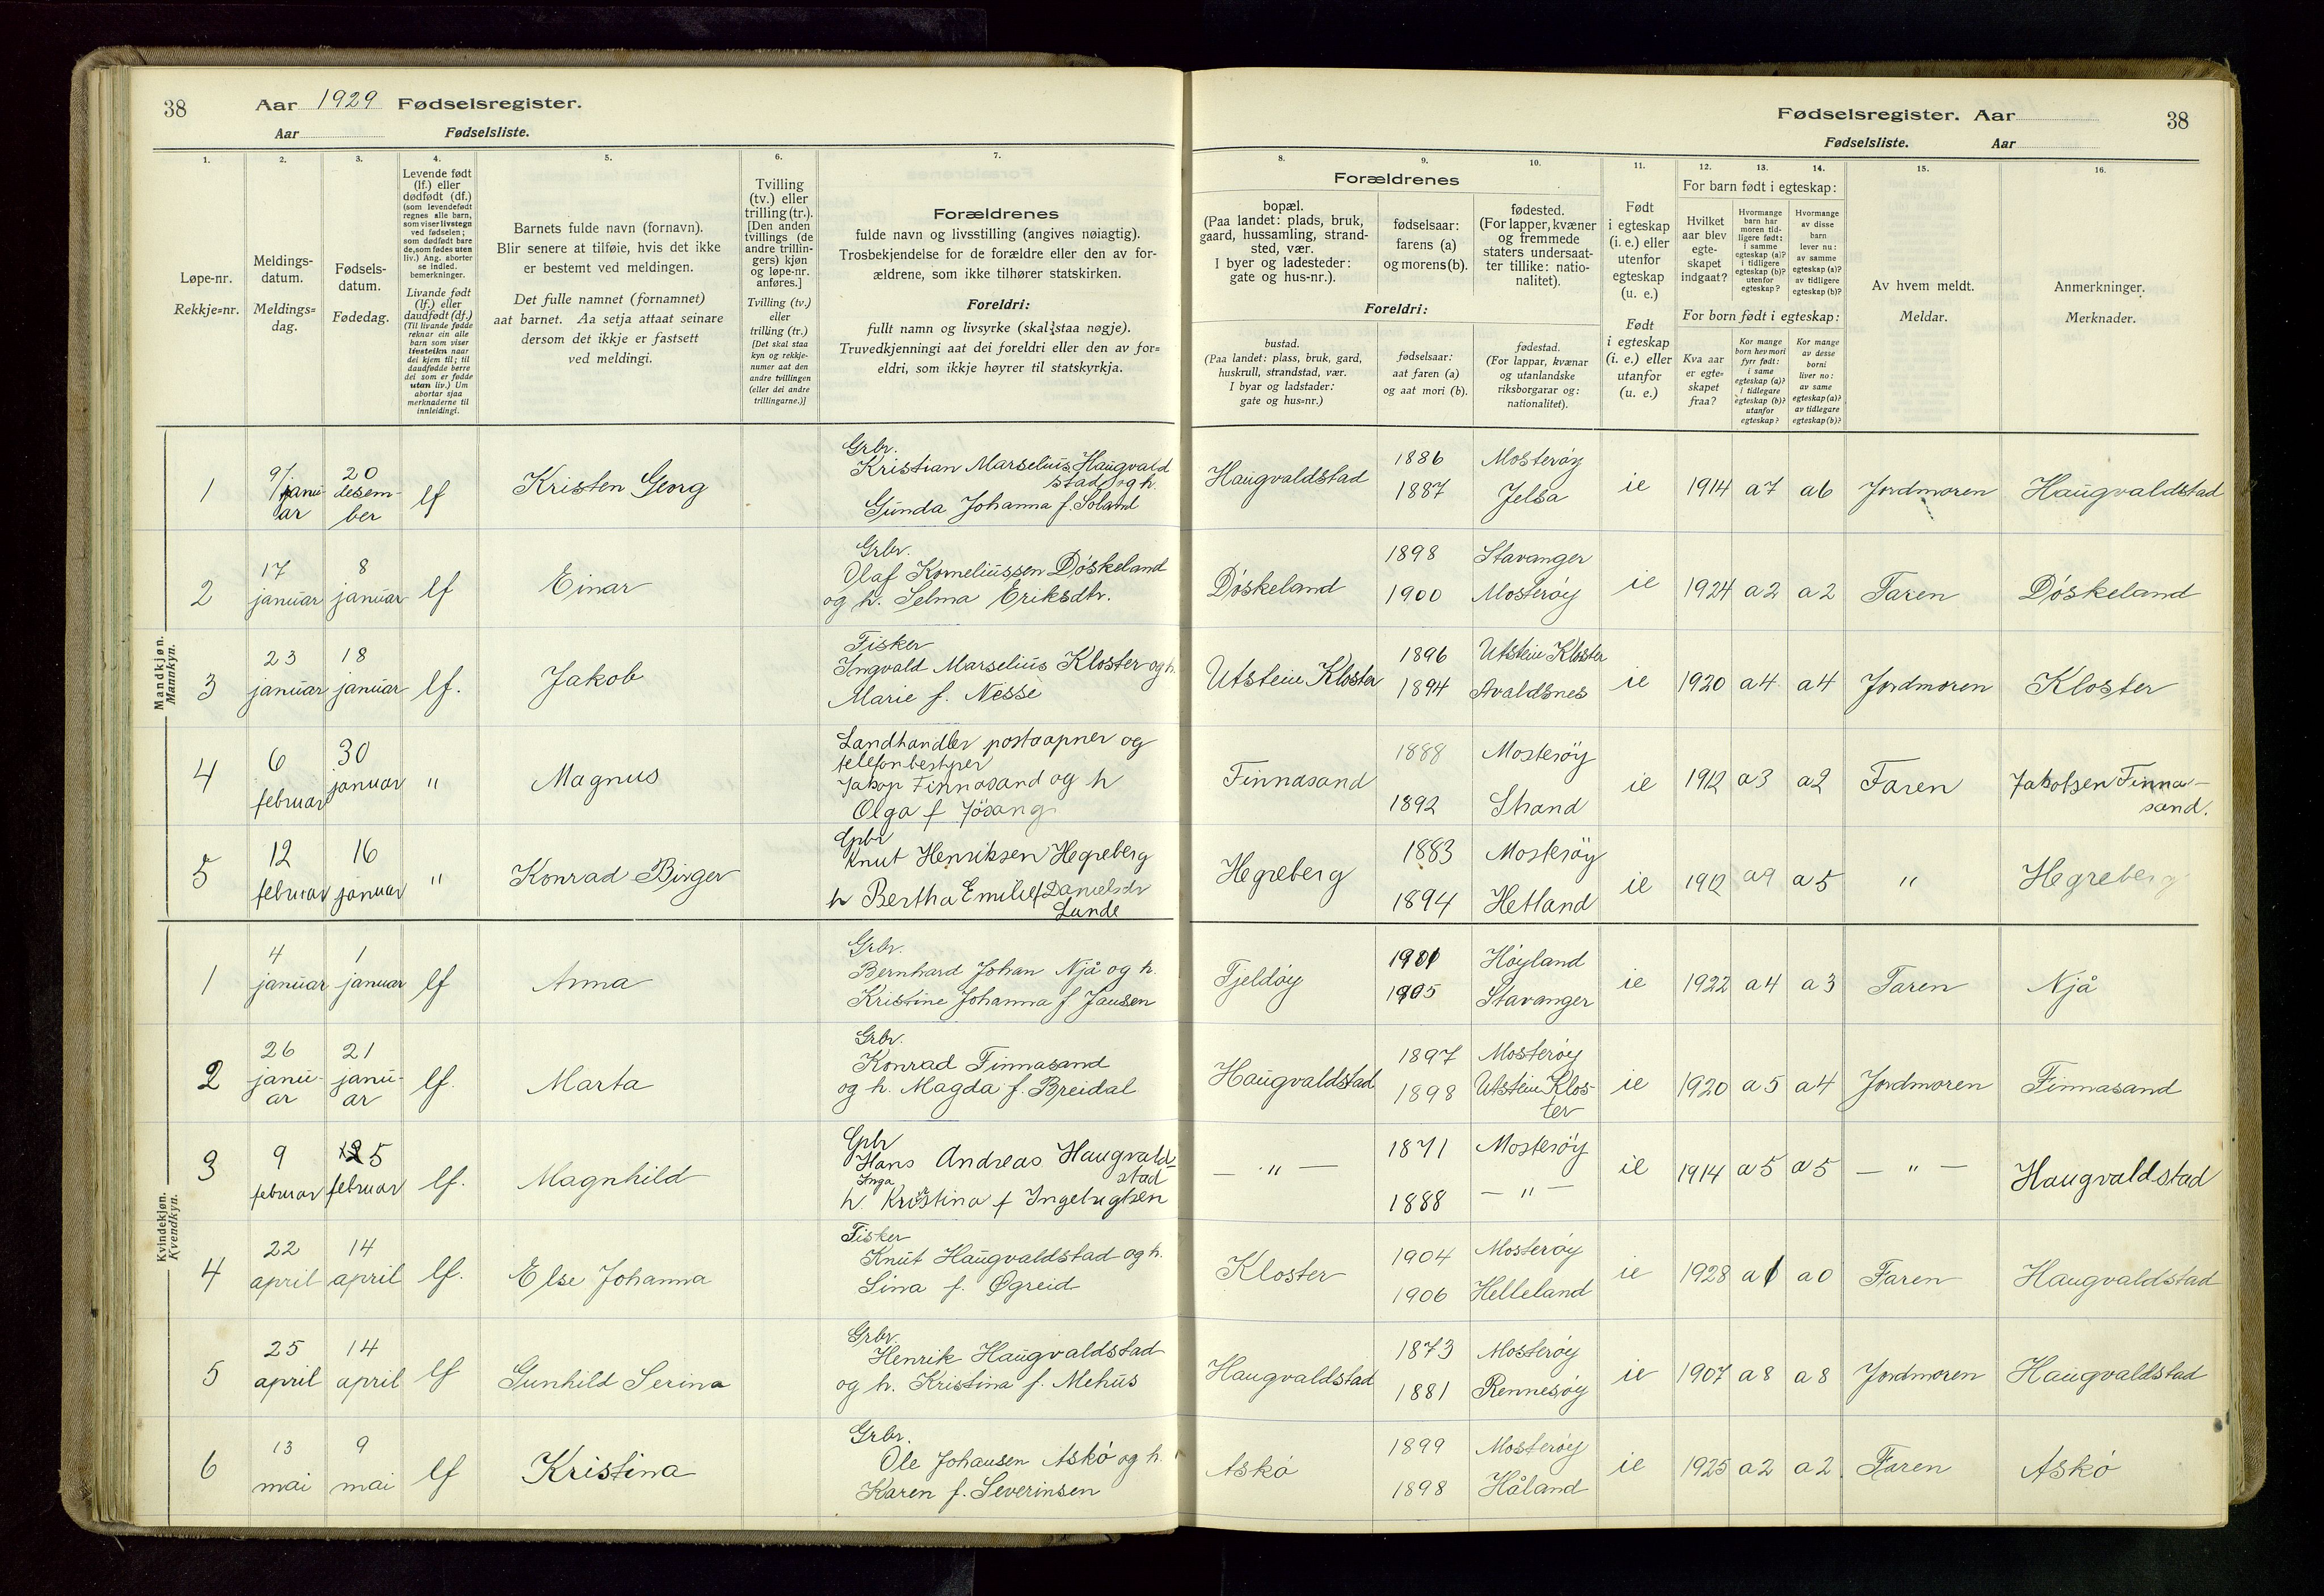 38 Aar 1929 Fødselsregister.
Aar Fødselsliste.
Fødselsregister. Aar 38
Fødselsliste. Aar
1. 2. 3. 4. 5. 6. 7.
8. 9. 10. 11. 12. 13. 14. 15. 16.
Løpe-nr.
Rekkje=nr.
Meldings-
datum.
Meldings=
dag.
Fødsels-
datum.
Fødedag.
Levende født
(lf.) eller
dødfødt (df.)
(som levendefødt
regnes alle barn,
som viser livstegn
ved fødselen;
som dødfødt bare
de, som fødes uten
liv.) Ang. aborter
se indled.
bemerkninger.
Livande født
(lf.) eller
daudfødt (df.)
(Til livande fødde
reknar ein alle
barn som viser
livsteikn naar
dei kjem til; til
daudfødde berre
dei som er fødde
utan liv.) Um
abortar sjaa
merknaderne til
innleidingi.
Barnets fulde navn (fornavn).
Blir senere at tilføie, hvis det ikke
er bestemt ved meldingen.
Det fulle namnet (fornamnet)
aat barnet. Aa setja attaat seinare
dersom det ikkje er fastsett
ved meldingi.
Tvilling
(tv.) eller
trilling (tr.).
[Den anden
tvillings (de
andre trillin-
gers) kjøn
og løpe-nr.
anføres.]
Tvilling (tv.)
eller
trilling (tr.)
[Det skal staa
kyn og rekkje-
numer aat den
andre tvillingen
(eller dei andre
trillingarne.)]
Forældrenes
fulde navn og livsstilling (angives nøiagtig).
Trosbekjendelse for de forældre eller den av for-
ældrene, som ikke tilhører statskirken.
Foreldri:
fullt namn og livsyrke (skal staa nøgje).
Truvedkjenningi aat dei foreldri eller den av for=
eldri, som ikkje høyrer til statskyrkja.
Forældrenes
bopæl.
(Paa landet: plads, bruk,
gaard, hussamling, strand-
sted, vær.
I byer og ladesteder:
gate og hus-nr.).
fødselsaar:
farens (a)
og morens (b).
fødested.
(For lapper, kvæner
og fremmede
staters undersaat-
ter tillike: natio-
nalitet).
Foreldri:
bustad.
(Paa landet: plass, bruk, gard,
huskrull, strandstad, vær.
I byar og ladstader:
gate og hus=nr.)
fødselsaar:
aat faren (a)
og aat mori (b).
fødestad.
(For lappar, kvænar
og utanlandske
riksborgarar og:
nationalitet).
Født
i egteskap
(i. e.) eller
utenfor
egteskap
(u. e.)
Født
i egteskap
(i. e.) eller
utanfor
(u. e.)
For barn født i egteskap:
Hvilket
aar blev
egte-
skapet
indgaat?
Hvormange
barn har
moren tid-
ligere født:
i samme
egteskap (a)?
i tidligere
egteskap (b)?
utenfor
egteskap?
Hvormange
av disse
barn
lever nu:
av samme
egteskap (a)?
av tidligere
egteskap (b)?
For born født i egteskap:
Kva aar
er egte=
skapet
fraa?
Kor mange
born hev mori
fyrr født:
i same
egteskap (a)?
i tidlegare
egteskap (b)?
utanfor
egteskap?
Kor mange
av desse
borni
liver no:
av same
egteskap (a)?
av tidlegare
egteskap (b)?
Av hvem meldt.
Meldar.
Anmerkninger.
Merknader.
Mandkjøn.
Mannkyn.
1 9/januar 20 desember lf Kristen Georg
Grbr.
Kristian Marselius Haugvald
stad og h.
Gunda Johanna f. Soland
Haugvaldstad 1886 Mosterøy ie 1914 a7 a6 Jordmoren Haugvaldstad
1887 Jelsa
2 17 januar 8 januar lf Einar
Grbr.
Olaf Korneliussen Døskeland
og h. Selma Eriksdtr.
Døskeland 1898 Stavanger ie 1924 a2 a2 Faren Døskeland
1900 Mosterøy
3 23 januar 18 januar lf. Jakob
Fisker
Ingvald Marselius Kloster og h.
Marie f. Nesse
Utstein Kloster 1896 Utstein Kloster ie 1920 a4 a4 Jordmoren Kloster
1894 Avaldsnes
4 6 februar 30 januar " Magnus
Landhandler postaapner og
telefonbestyrer
Jakop Finnasand og h
Olga f Jøsang
Finnasand 1888 Mosterøy ie 1912 a3 a2 Faren Jakobsen Finna-
1892 Strand sand.
5 12 februar 16 januar " Konrad Birger
Grbr
Knut Henriksen Hegreberg
h Bertha Emilie f Danielsdr
Lunde
Hegreberg 1883 Mosterøy ie 1912 a9 a5 " Hegreberg
1894 Hetland
Kvindekjøn.
Kvendkyn.
1 4 januar 1 januar lf Anna
Grbr.
Bernhard Johan Njå og h.
Kristine Johanna f Jansen
Fjeldøy 1901 Høyland ie 1922 a4 a3 Faren Njå
1905 Stavanger
2 26 januar 21 januar lf. Marta
Grbr.
Konrad Finnasand
og h. Magda f. Breidal
Haugvaldstad 1897 Mosterøy ie 1920 a5 a4 Jordmoren Finnasand
1898 Utstein Klos-
ter
3 9 februar 5 februar lf. Magnhild
Grbr
Hans Andreas Haugvald-
Inga stad
h. Kristina f Ingebrigtsen
— " — 1871 Mosterøy ie 1914 a5 a5 — " — Haugvaldstad
1888 — " —
4 22 april 14 april lf. Else Johanna
Fisker
Knut Haugvaldstad og h.
Lina f. Øgreid
Kloster 1904 Mosterøy ie 1928 a1 a0 Faren Haugvaldstad
1906 Helleland
5 25 april 14 april lf Gunhild Serina
Grbr.
Henrik Haugvaldstad
og h. Kristina f. Mehus
Haugvaldstad 1873 Mosterøy ie 1907 a8 a8 Jordmoren Haugvaldstad
1881 Rennesøy
6 13 mai 9 mai lf Kristina
Grbr.
Ole Johansen Askø og h.
Karen f. Severinsen
Askø 1899 Mosterøy ie 1925 a2 a2 Faren Askø
1898 Håland